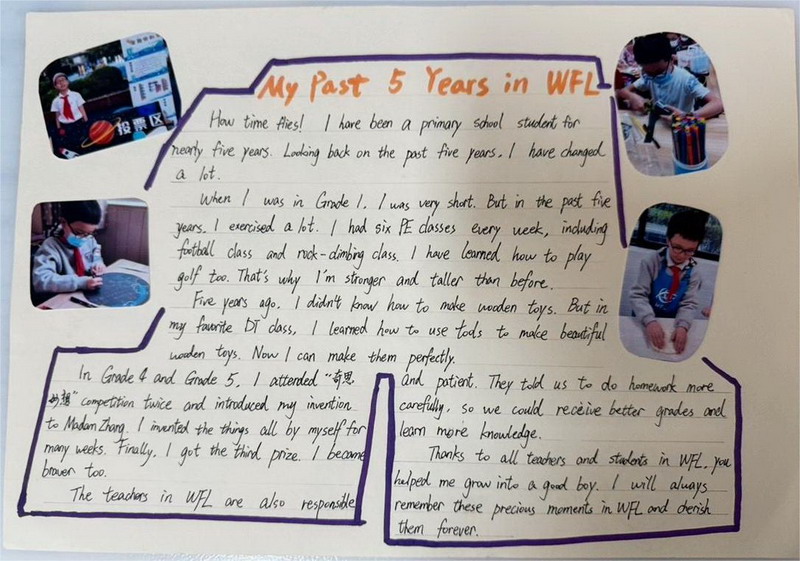 My Past 5 Years in WFL
How time flies! I have been a primary school student for
nearly five years. Looking back on the past five years, I have changed
a lot.
When I was in Grade 1, I was very short. But in the past five
years, I exercised a lot. I had six PE classes every week, including
football class and rock-climbing class. I have learned how to play
golf too. That's why I'm stronger and taller than before.
Five years ago, I didn't know how to make wooden toys. But in
my favorite DT class, I learned how to use tools to make beautiful
wooden toys. Now I can make them perfectly.
In Grade 4 and Grade 5, I attended "奇思
妙想" competition twice and introduced my invention
to Madam Zhang. I invented the things all by myself for
many weeks. Finally, I got the third prize. I became
braver too.
The teachers in WFL are also responsible
and patient. They told us to do homework more
carefully, so we could receive better grades and
learn more knowledge.
Thanks to all teachers and students in WFL, you
helped me grow into a good boy. I will always
remember these precious moments in WFL and cherish
them forever.
投票区